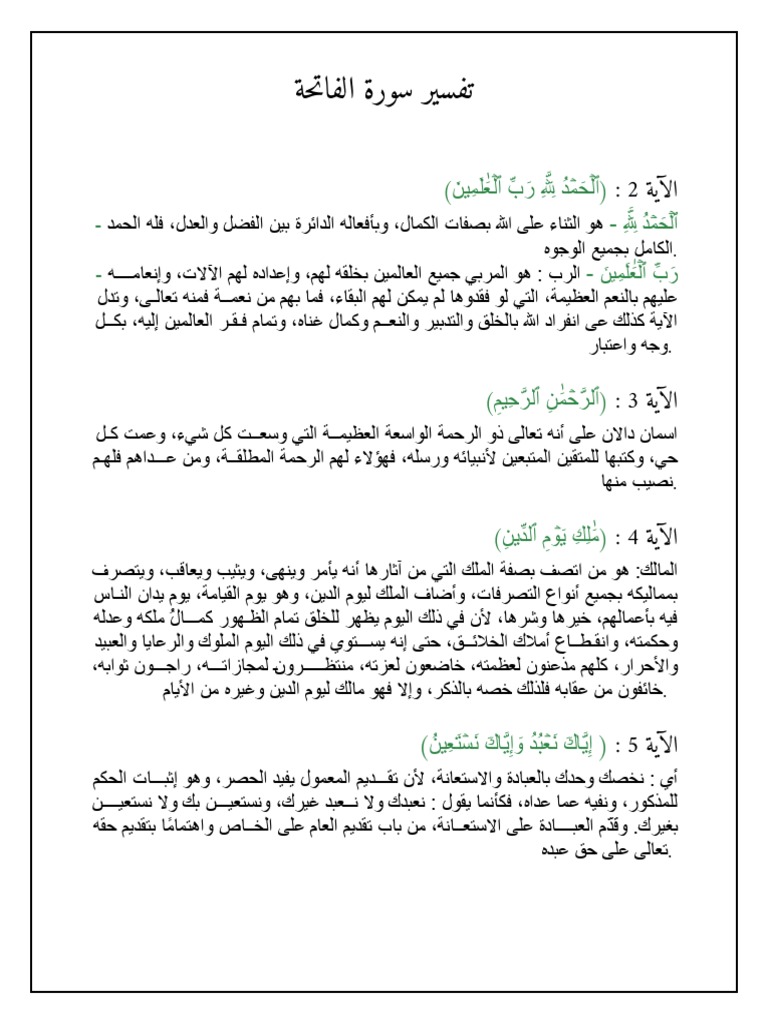 تفسير سورة الفاتحة
الآية 2 : (ٱلۡحَمۡدُ لِلَّهِ رَبِّ ٱلۡعَٰلَمِينَ)
ٱلۡحَمۡدُ لِلَّهِ - هو الثناء على الله بصفات الكمال، وبأفعاله الدائرة بين الفضل والعدل، فله الحمد -
الكامل بجميع الوجوه.
رَبِّ ٱلۡعَٰلَمِينَ - الرب : هو المربي جميع العالمين بخلقه لهم، وإعداده لهم الآلات، وإنعامـــه -
عليهم بالنعم العظيمة، التي لو فقدوها لم يمكن لهم البقاء، فما بهم من نعمــة فمنه تعالـى، وتدل
الآية كذلك عى انفراد الله بالخلق والتدبير والنعــم وكمال غناه، وتمام فـقـر العالمين إليه، بكــل
وجه واعتبار.
الآية 3 : (ٱلرَّحۡمَٰنِ ٱلرَّحِيمِ)
اسمان دالان على أنه تعالى ذو الرحمة الواسعة العظيمــة التي وسعــت كل شيء، وعمت كـل
حي، وكتبها للمتقين المتبعين لأنبيائه ورسله، فهؤلاء لهم الرحمة المطلقــة، ومن عـــداهم فلهـم
نصيب منها.
الآية 4 : (مَٰلِكِ يَوۡمِ ٱلدِّينِ)
المالك: هو من اتصف بصفة الملك التي من آثارها أنه يأمر وينهى، ويثيب ويعاقب، ويتصرف
بمماليكه بجميع أنواع التصرفات، وأضاف الملك ليوم الدين، وهو يوم القيامة، يوم يدان النـاس
فيه بأعمالهم، خيرها وشرها، لأن في ذلك اليوم يظهر للخلق تمام الظـهور كمـــالُ ملكه وعدله
وحكمته، وانقـطــاع أملاك الخلائــق، حتى إنه يســتوي في ذلك اليوم الملوك والرعايا والعبيد
والأحرار، كلهم مذعنون لعظمته، خاضعون لعزته، منتظـــــرون لمجازاتـــه، راجـــون ثوابه،
خائفون من عقابه فلذلك خصه بالذكر، وإلا فهو مالك ليوم الدين وغيره من الأيام.
الآية 5 : ( إِيَّاكَ نَعۡبُدُ وَإِيَّاكَ نَسۡتَعِينُ)
أي : نخصك وحدك بالعبادة والاستعانة، لأن تقــديم المعمول يفيد الحصر، وهو إثبــات الحكم
للمذكور، ونفيه عما عداه، فكأنما يقول : نعبدك ولا نــعبد غيرك، ونستعيــن بك ولا نستعيــــن
بغيرك. وقدّم العبــــادة على الاستعــانة، من باب تقديم العام على الخــاص واهتمامًا بتقديم حقه
تعالى على حق عبده.